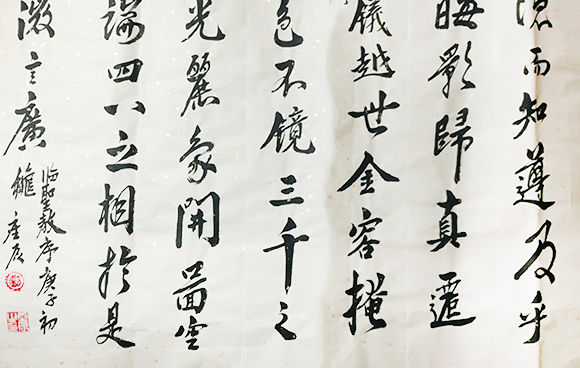 德而知遵及乎
晦影歸真遷
儀越世金容掩
色不鏡三千之
光麗象開圖空
端四八之相於是
微言廣
臨聖教序庚子初